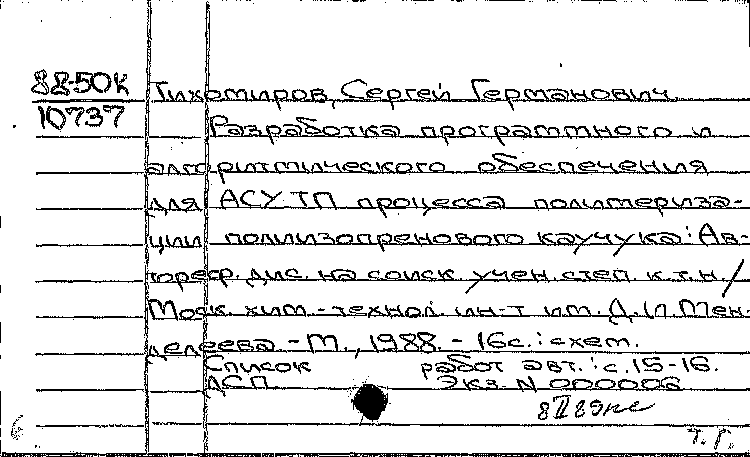 88-50к
10737
Тихомиров, Сергей Германович
Разработка программного и
алгоритмического обеспечения
для АСУ ТП процесса полимериза-
ции полиизопренового каучука: Ав-
тореф. дис. на соиск учен. степ. к.т.н./
Моск. хим.-технол. ин-т им. Д.И. Мен-
делеева - М., 1988. - 16с.: схем.
Список работ авт.: с.15-16.
ДСП Экз. N 000006
т. р.